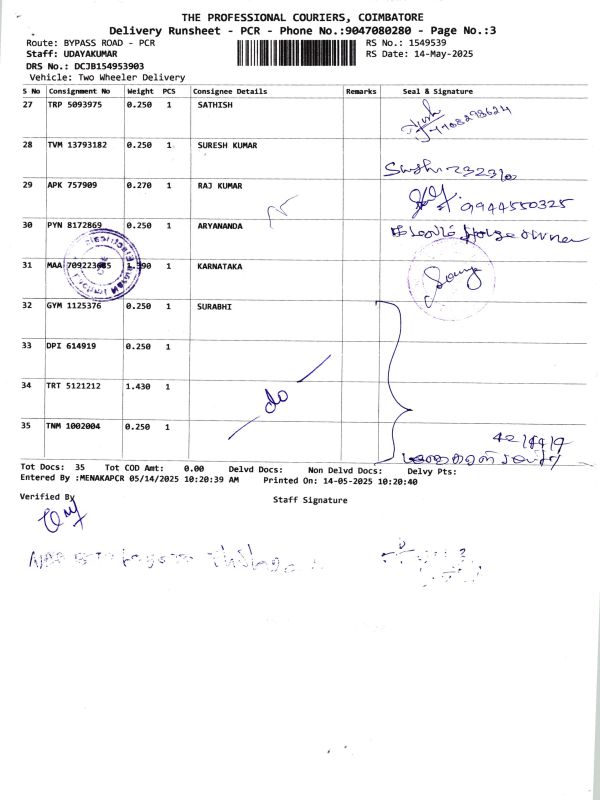 THE PROFESSIONAL COURIERS, COIMBATORE
Delivery Runsheet - PCR - Phone No.:9047080280 - Page No.:3
Route: BYPASS ROAD - PCR RS No.: 1549539
Staff: UDAYAKUMAR RS Date: 14-May-2025
DRS No.: DCJB154953903
Vehicle: Two Wheeler Delivery
S No Consignment No Weight PCS Consignee Details Remarks Seal & Signature
27 TRP 5093975 0.250 1 SATHISH
28 TVM 13793182 0.250 1 SURESH KUMAR
29 APK 757909 0.270 1 RAJ KUMAR 9944550325
30 PYN 8172869 0.250 1 ARYANANDA House owner
31 MAA 1 KARNATAKA
32 GYM 1125376 0.250 1 SURABHI
33 DPI 614919 0.250 1
34 TRT 5121212 1.430 1 do
35 TNM 1002004 0.250 1
Tot Docs: 35 Tot COD Amt: 0.00 Delvd Docs: Non Delvd Docs: Delvy Pts:
Entered By :MENAKAPCR 05/14/2025 10:20:39 AM Printed On: 14-05-2025 10:20:40
Verified By Staff Signature